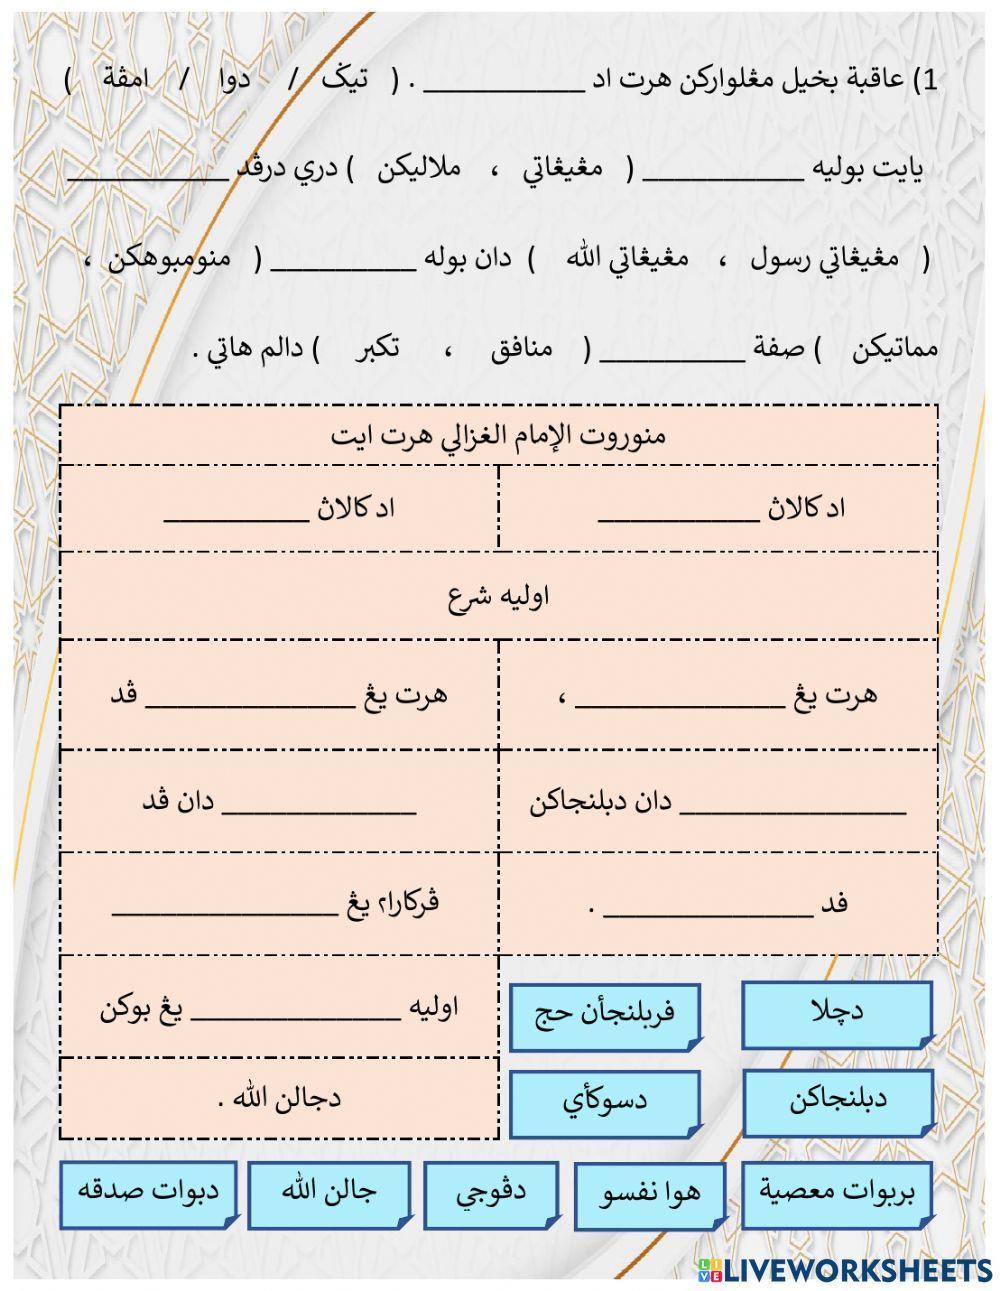 1) عاقبة بخيل مڠلواركن هرت اد __________ . ( تيݢ / دوا / امڤة )
يايت بوليه __________ ( مڠيڠاتي ، ملاليكن ) دري درڤد __________
( مڠيڠاتي رسول ، مڠيڠاتي الله ) دان بوله _________ ( منومبوهكن ،
مماتيكن ) صفة _________ ( منافق ، تكبر ) دالم هاتي .
منوروت الإمام الغزالي هرت ايت
اد كالاڽ __________
اد كالاڽ _________
اوليه شرع
هرت يڠ _____________ ،
هرت يڠ _____________ ڤد
______________ دان دبلنجاكن
____________ دان ڤد
فد _____________ .
ڤركارا٢ يڠ ______________
اوليه _____________ يڠ بوكن
دجالن الله .
دچلا
فربلنجأن حج
دبلنجاكن
دسوكأي
بربوات معصية
هوا نفسو
دڤوجي
جالن الله
دبوات صدقه
LIVEWORKSHEETS